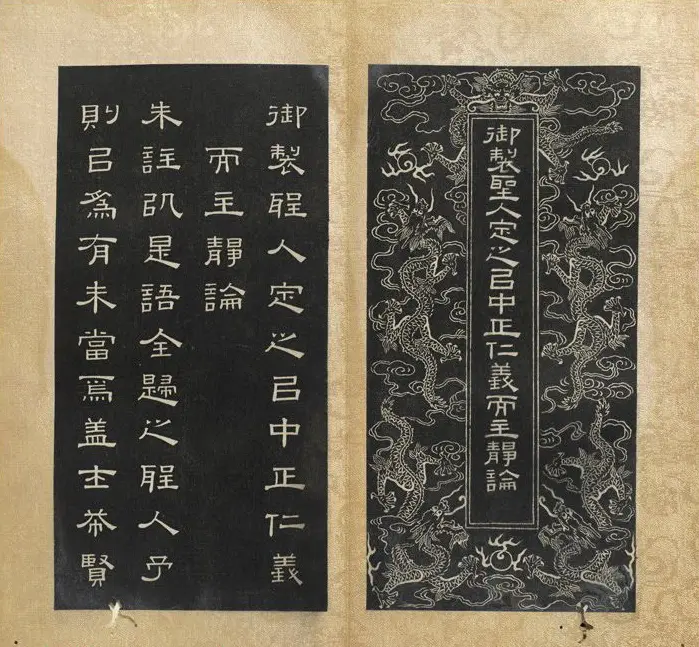 御製聖人定之㠯中正仁義而主靜論
御製聖人定之㠯中正仁義
而主靜論
朱註是語全歸之聖人予
則㠯為有未當焉盖士希賢